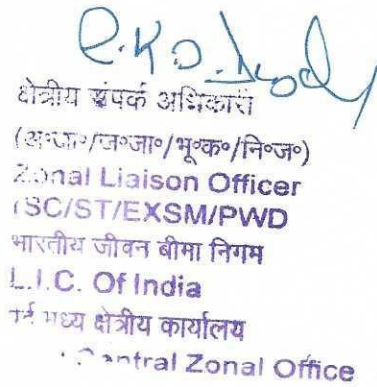 क्षेत्रीय संपर्क अधिकारी
(अ॰जा॰/ज॰जा॰/भू॰क॰/नि॰ज॰)
Zonal Liaison Officer
(SC/ST/EXSM/PWD
भारतीय जीवन बीमा निगम
L.I.C. Of India
मध्य क्षेत्रीय कार्यालय
Central Zonal Office